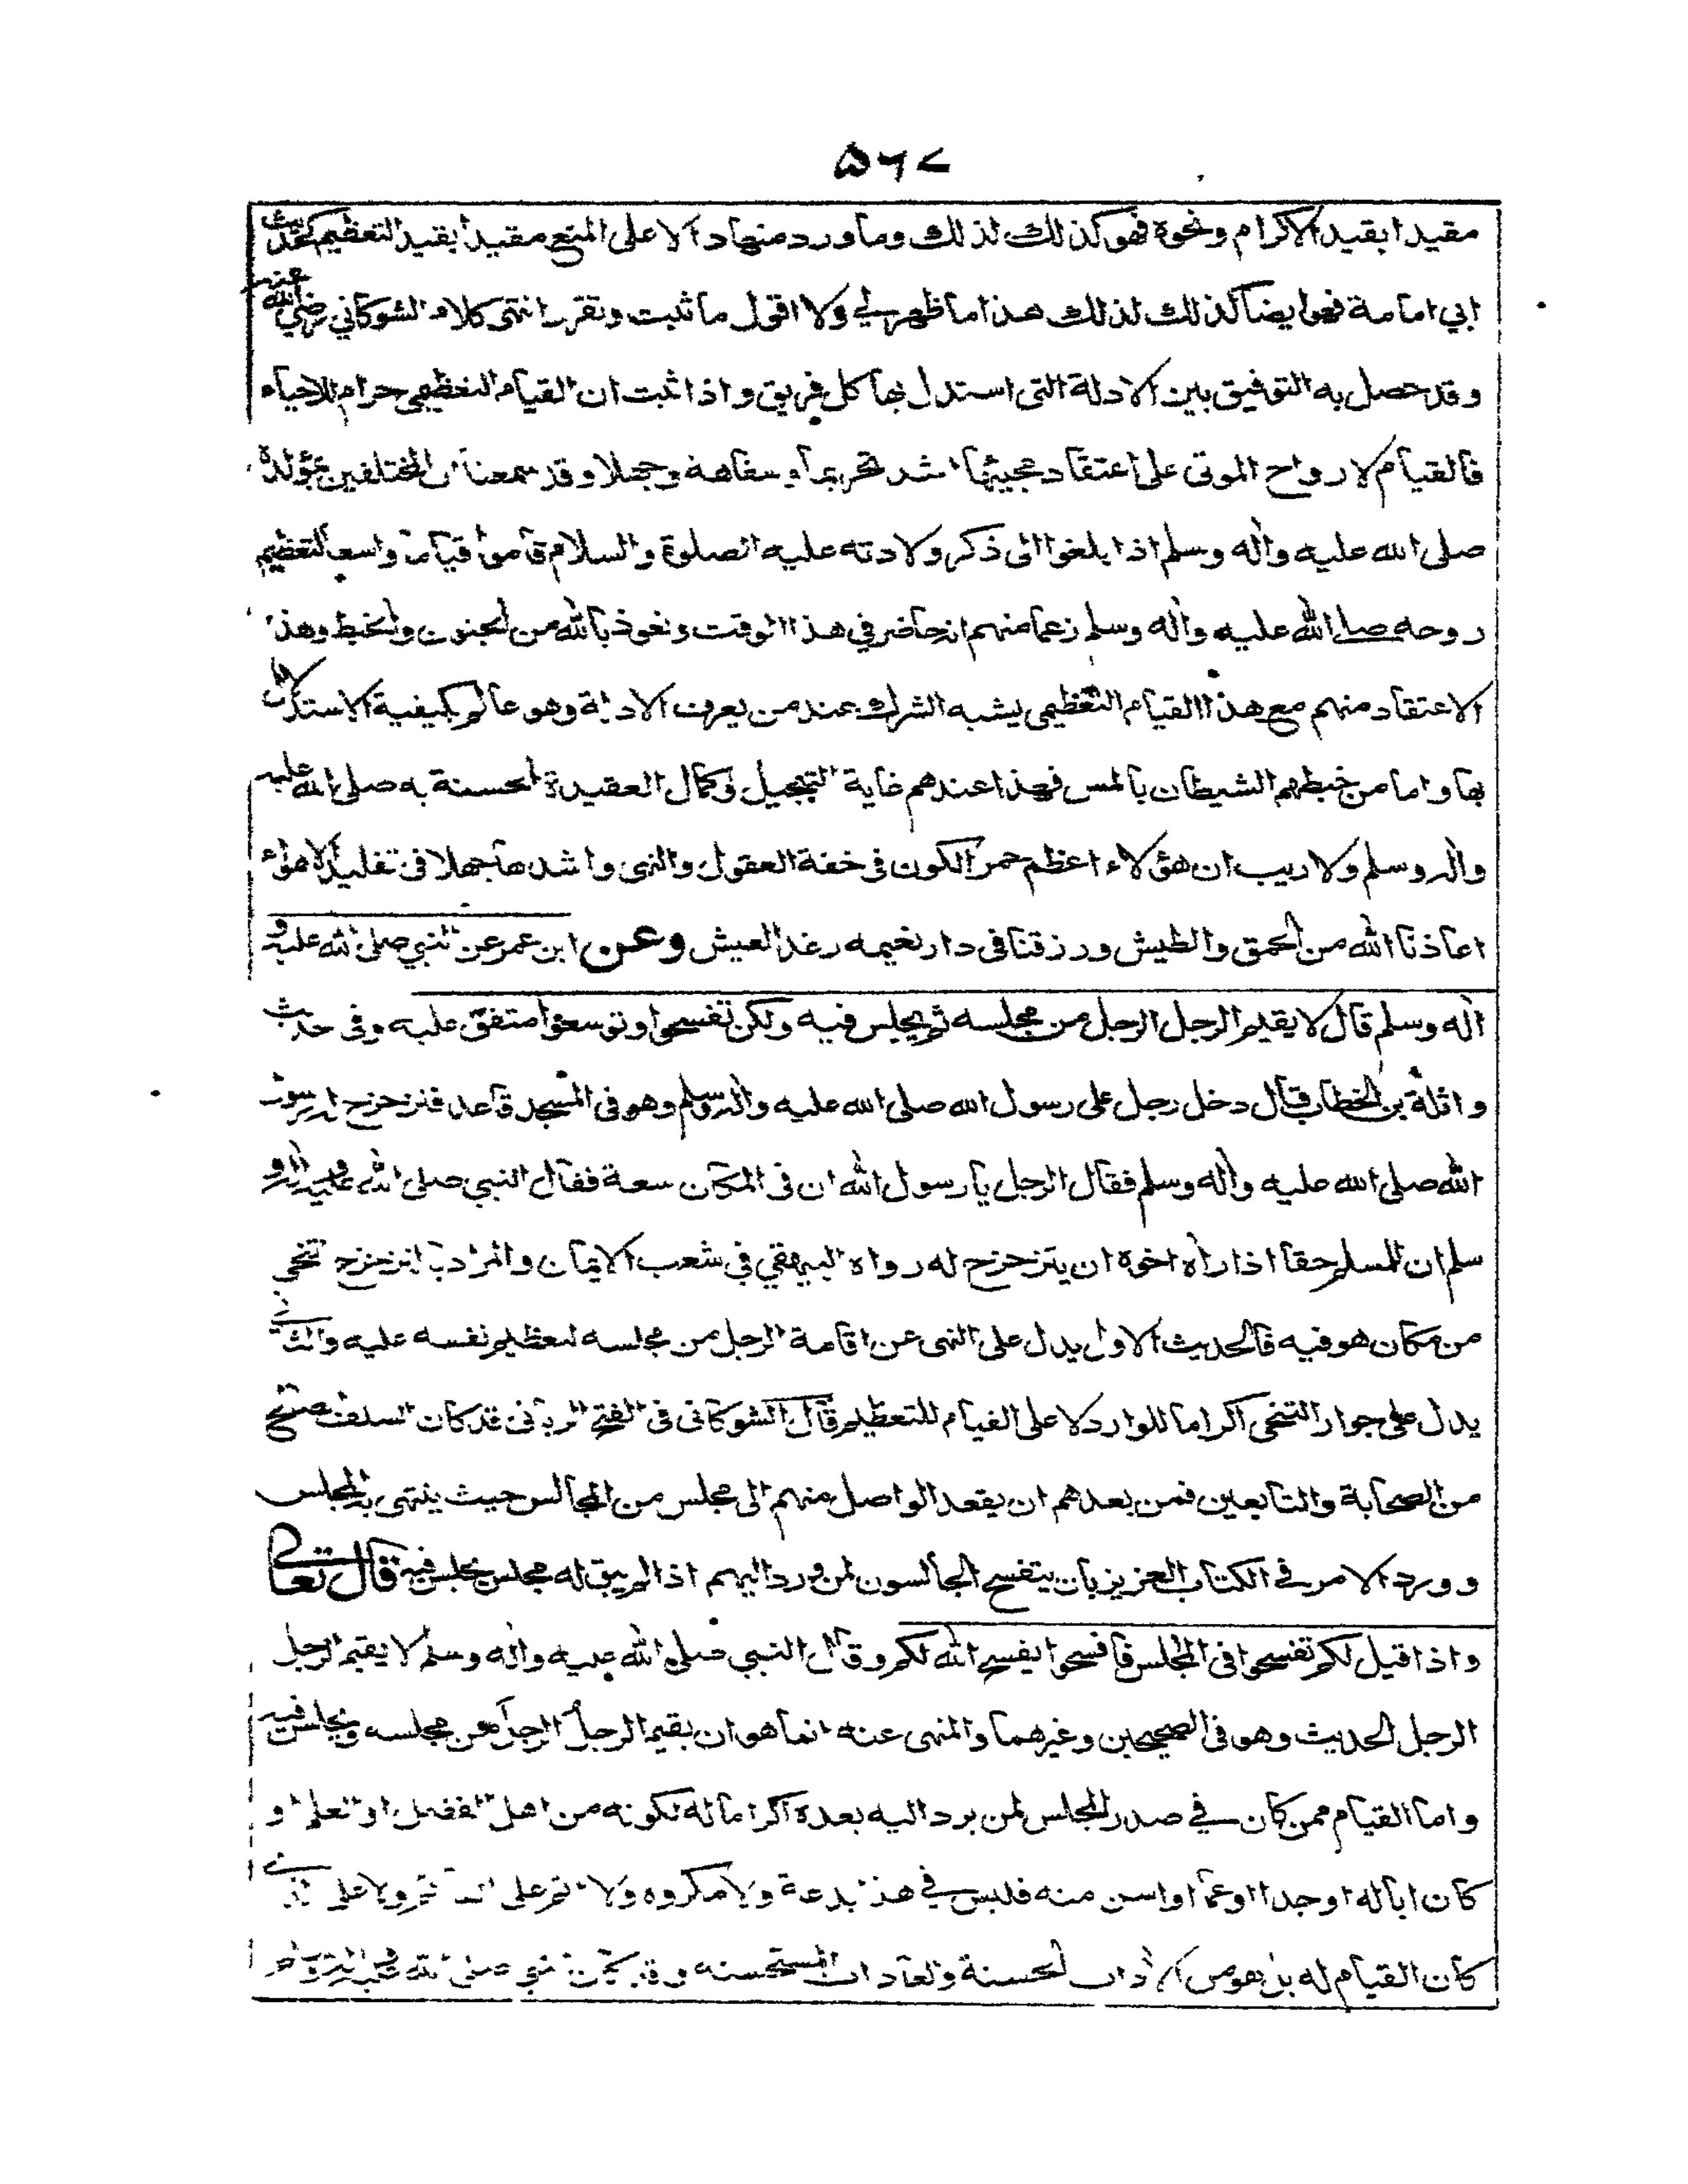 ۵۶۷
مقيدا بقيد الاكرام ونحوه فهو كذلك لذلك وما ورد منها دالا على المنع مقيدا بقيد التعظيم كحديث
ابي امامة فهو ايضا كذلك لذلك هذا ما ظهر لي ولا اقول ما ثبت وتقرر انتهى كلام الشوكاني رضي الله عنه
وقد حصل به التوفيق بين الادلة التى استدل بها كل فريق واذا ثبت ان القيام التعظيمى حرام للاحياء
فالقيام لارواح الموتى على اعتقاد مجيئها اشد تحريما وسفاهة وجهلا وقد سمعنا ان المختلفين بمولده
صلى الله عليه واله وسلم اذا بلغوا الى ذكر ولادته عليه الصلوة والسلام قاموا قياما واسعا لتعظيم
روحه صلى الله عليه واله وسلم زعما منهم انه حاضر في هذا الوقت ونعوذ بالله من الجنون والخبط وهذا
الاعتقاد منهم مع هذا القيام التعظيمى يشبه الشرك عند من يعرف الادلة وهو عالم بكيفية الاستدلال
بها واما من خبطهم الشيطان بالمس فهذا عندهم غاية التبجيل وكمال العقيدة الحسنة به صلى الله عليه
واله وسلم ولا ريب ان هؤلاء اعظم حمر الكون فى خفة العقول والنهى واشدها جهلا فى تقليد الاهواء
اعاذنا الله من الحمق والطيش ورزقنا فى دار نعيمه رغد العيش وعن ابن عمر عن النبي صلى الله عليه و
اله وسلم قال لا يقيم الرجل الرجل من مجلسه ثم يجلس فيه ولكن تفسحوا وتوسعوا متفق عليه وفى حديث
واثلة بن الخطاب قال دخل رجل على رسول الله صلى الله عليه واله وسلم وهو فى المسجد قاعد فتزحزح له رسول
الله صلى الله عليه واله وسلم فقال الرجل يا رسول الله ان فى المكان سعة فقال النبي صلى الله عليه واله و
سلم ان للمسلم حقا اذا راه اخوه ان يتزحزح له رواه البيهقي في شعب الايمان والمراد بالتزحزح التنحي
من مكان هو فيه فالحديث الاول يدل على النهى عن اقامة الرجل من مجلسه لتعظيم نفسه عليه والثاني
يدل على جواز التنحى اكراما للوارد لا على القيام للتعظيم قال الشوكانى فى الفتح الربانى قد كان السلف الصالح
من الصحابة والتابعين فمن بعدهم ان يقعد الواصل منهم الى مجلس من المجالس حيث ينتهى به المجلس
وورد الامر في الكتاب العزيز بان يتفسح الجالسون لمن ورد اليهم اذا لم يبق له مجلس يجلس فيه قال تعالى
واذا قيل لكم تفسحوا فى المجلس فافسحوا يفسح الله لكم وقال النبي صلى الله عليه واله وسلم لا يقيم الرجل
الرجل الحديث وهو فى الصحيحين وغيرهما والمنهى عنه انما هو ان يقيم الرجل الرجل من مجلسه ويجلس فيه
واما القيام ممن كان في صدر المجلس لمن يرد اليه بعده اكراما له لكونه من اهل الفضل او العلم او
كان ابا له او جدا او عما او اسن منه فليس في هذا بدعة ولا مكروه ولا اثم على القائم ولا على الذي
كان القيام له بل هو من الاداب الحسنة والعادات المستحسنة وقد كان النبي صلى الله عليه واله وسلم